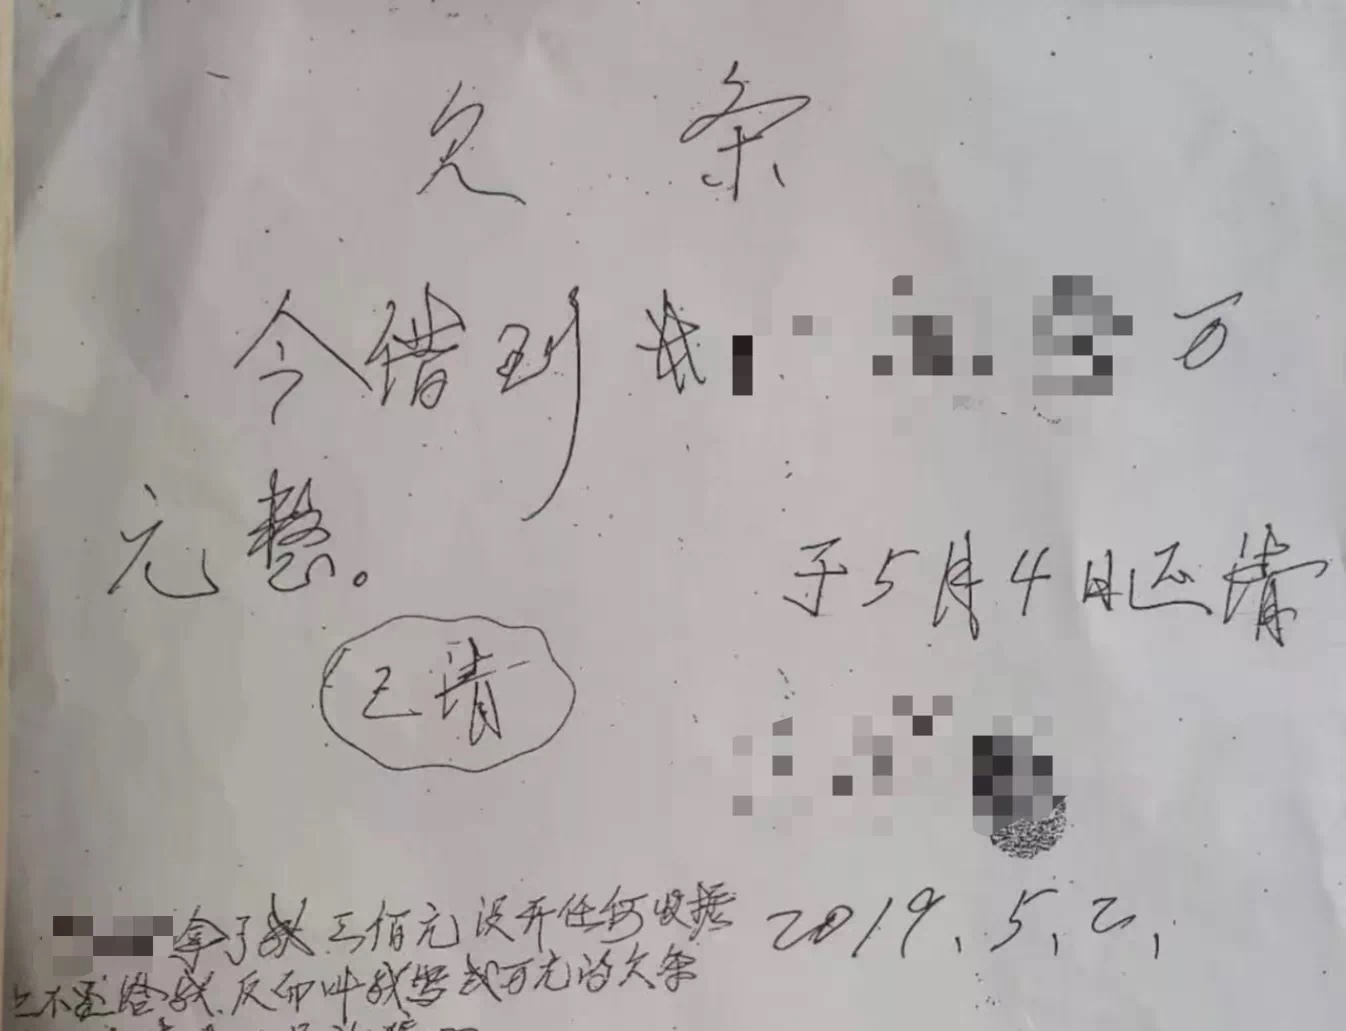 欠条
今借到 万
元整。
于5月4日还清
已清
2019.5.2.
拿了我三佰元没开任何收据
不还给我.反而叫我写贰万元的欠条